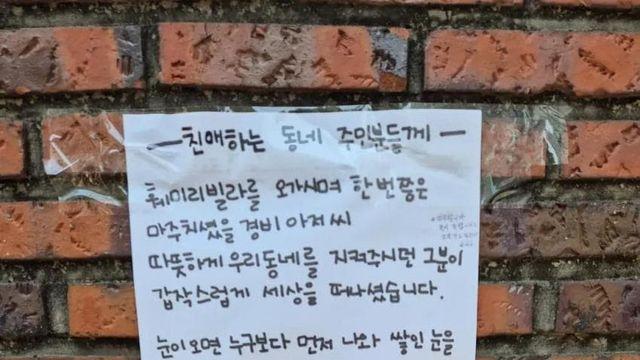 친애하는 동네 주민분들께
훼미리빌라를 오가시며 한번쯤은
마주치셨을 경비 아저씨
따뜻하게 우리동네를 지켜주시던 그분이
갑작스럽게 세상을 떠나셨습니다.
눈이오면 누구보다 먼저 나와 쌓인 눈을